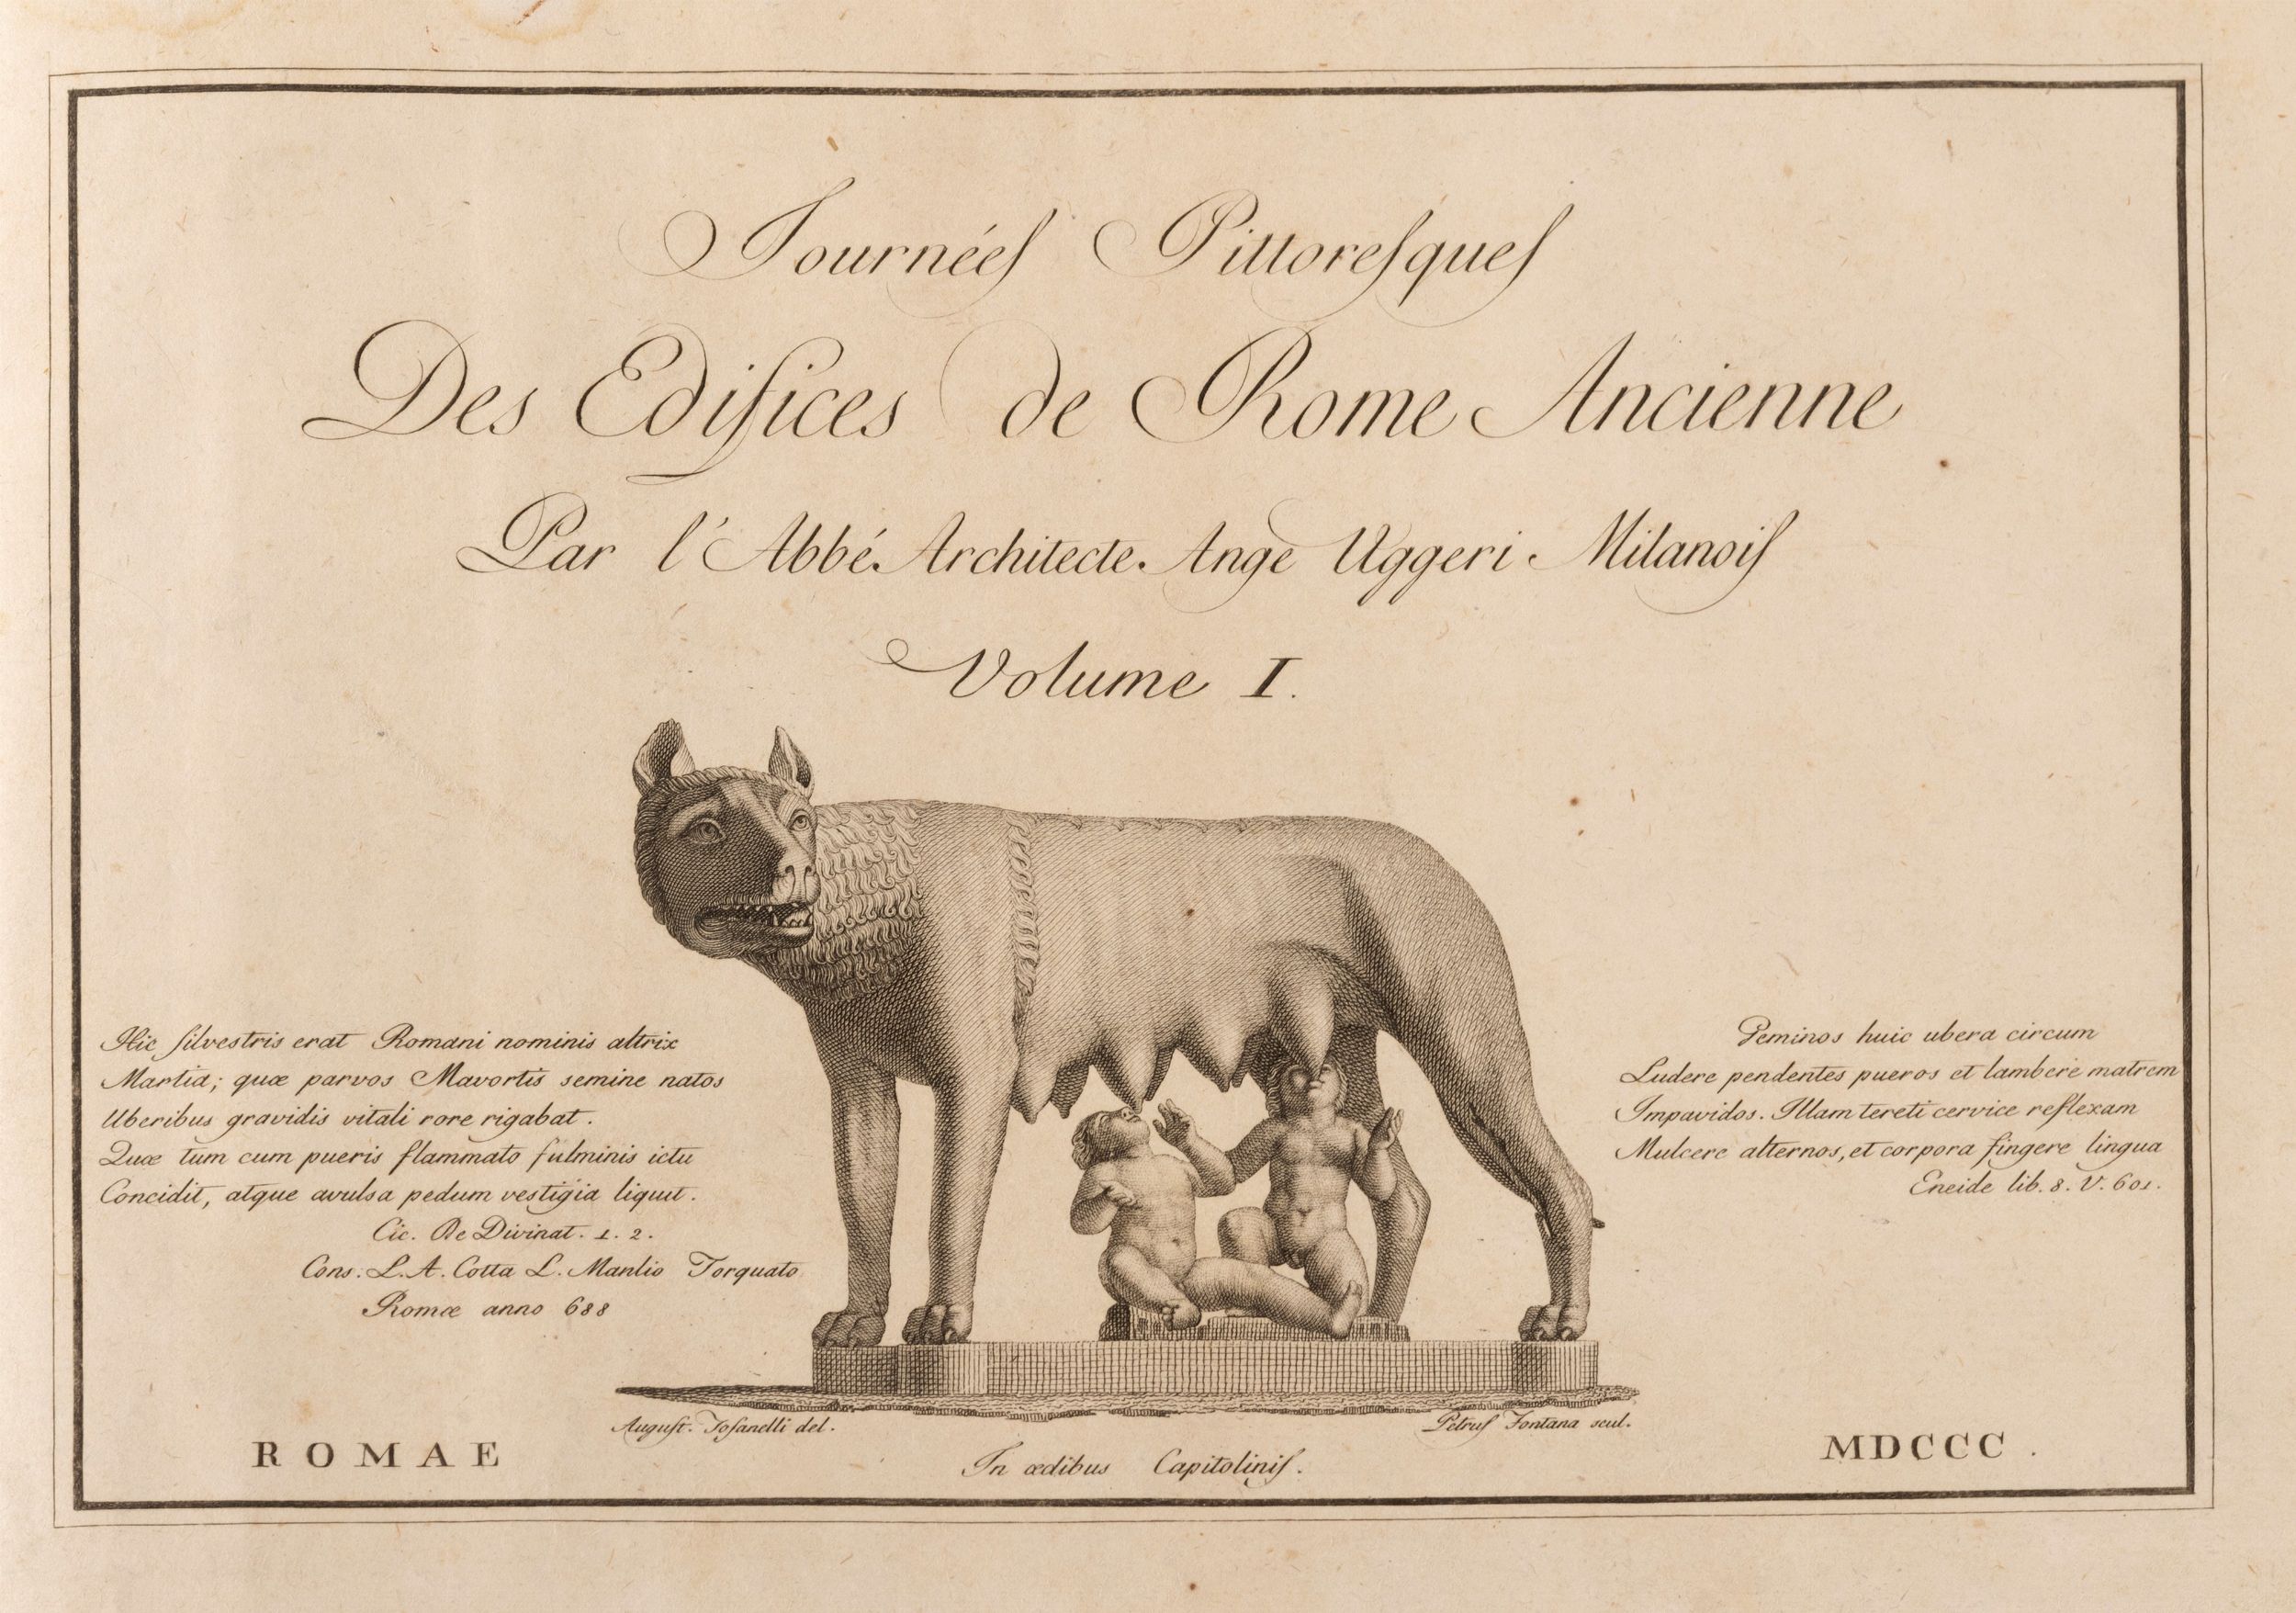 Journées Pittoresques
Des Edifices de Rome Ancienne
Par l'Abbé Architecte Ange Uggeri Milanois
Volume I.
Hic silvestris erat Romani nominis altrix
Martia; quæ parvos Mavortis semine natos
Uberibus gravidis vitali rore rigabat.
Quæ tum cum pueris flammato fulminis ictu
Concidit, atque avulsa pedum vestigia liquit.
Cic. De Divinat. 1. 2.
Cons. L. A. Cotta L. Manlio Torquato
Romæ anno 688
Geminos huic ubera circum
Ludere pendentes pueros et lambere matrem
Impavidos. Illam tereti cervice reflexam
Mulcere alternos, et corpora fingere lingua
Eneide lib. 8. V. 601.
August. Tofanelli del.
Petrus Fontana scul.
In ædibus Capitolinis.
ROMAE
MDCCC.